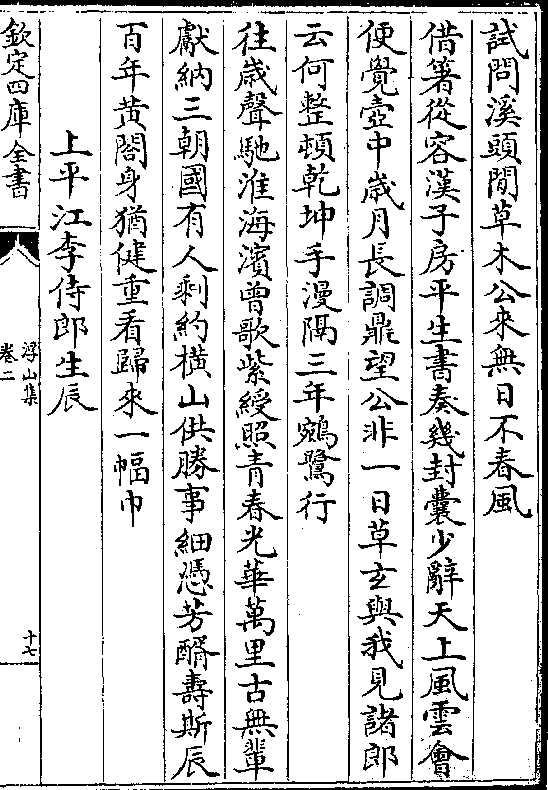 試問溪頭閒草木公來無日不春風
借箸從容漢子房平生書奏幾封囊少辭天上風雲會
便覺壺中歳月長調鼎望公非一日草玄與我見諸郎
云何整頓乾坤手漫隔三年鵷鷺行
往歳聲馳淮海濱曾歌紫綬照青春光華萬里古無輩
獻納三朝國有人剩約橫山供勝事細憑芳醑壽斯辰
百年黄閣身猶健重看歸來一幅巾
上平江李侍郎生辰
欽定四庫全書
浮山集
卷二
十七